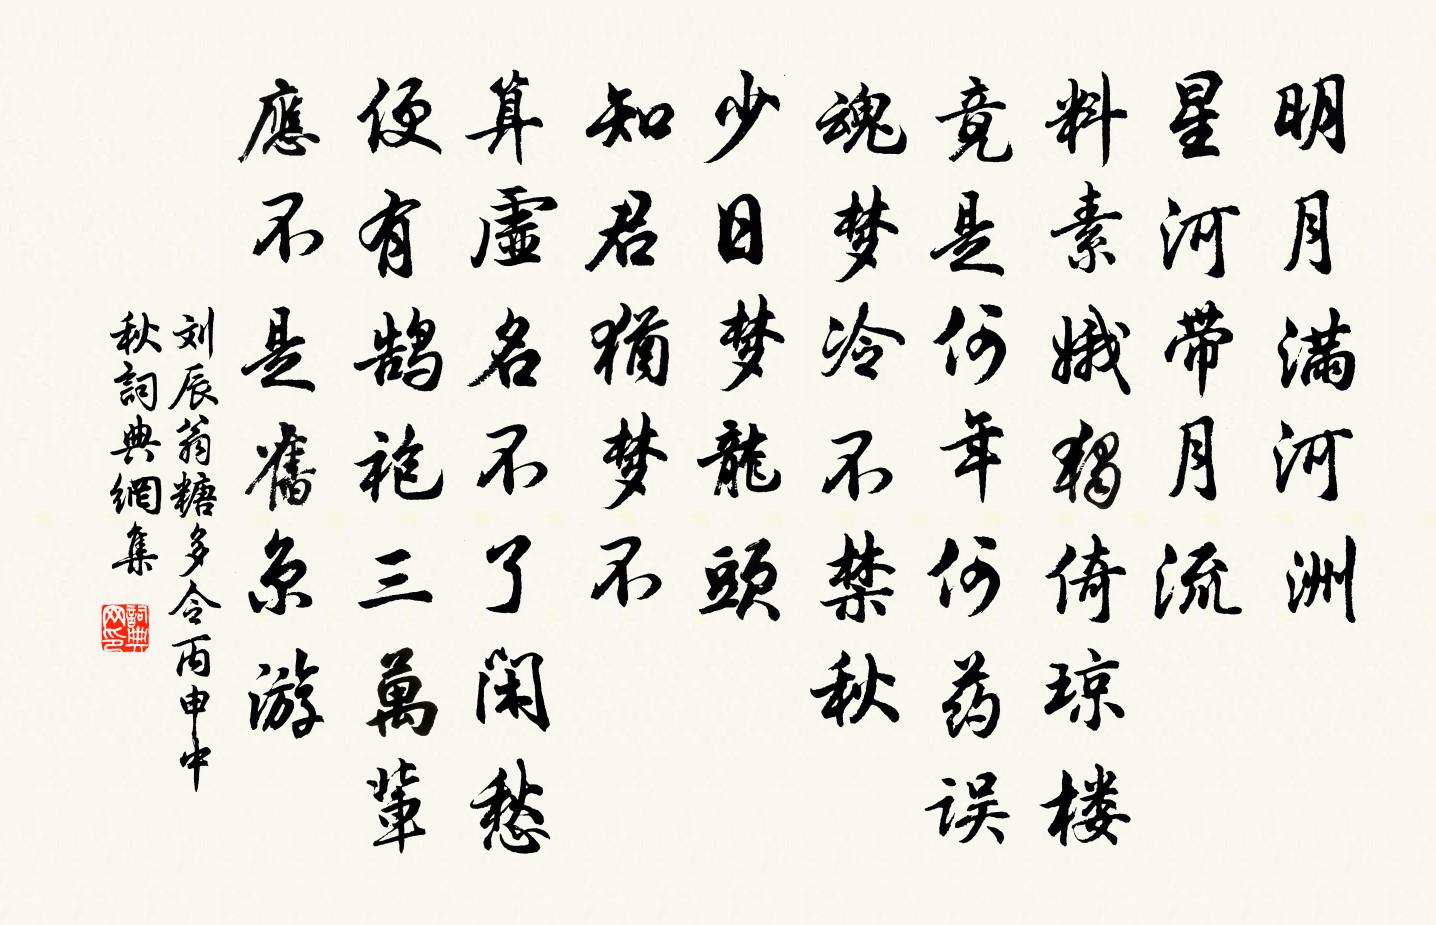 明月满河洲
星河带月流
料素娥独倚琼楼
竟是何年何药误
魂梦冷不禁秋
少日梦龍頭
知君猶梦不
算虛名不了闲愁
便有鹄袍三萬輩
應不是舊京游
刘辰翁糖多令丙申中
秋詞典網集
詞典网印